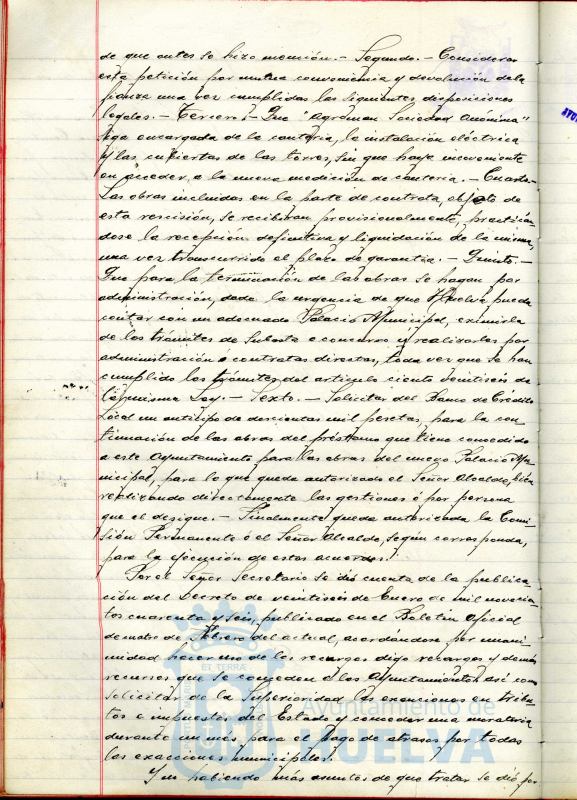 de que antes se hizo mención.- Segundo.- Considerar
esta petición por mutua conveniencia y devolución de la
fianza una vez cumplidas las siguientes disposiciones
legales.- Tercero.- Que "Agroman Sociedad Anónima"
siga encargada de la cantería, la instalación eléctrica
y las cubiertas de las torres, sin que haya inconveniente
en acceder a la nueva medición de cantería.- Cuarto.-
Las obras incluidas en la parte de contrata, objeto de
esta rescisión, se recibiran provisionalmente, practicán-
dose la recepción definitiva y liquidación de la misma,
una vez transcurrido el plazo de garantía.- Quinto.-
Que para la terminación de las obras se hagan por
administración, dada la urgencia de que Huelva pueda
contar con un adecuado Palacio Municipal, eximirla
de los trámites de Subasta o concurso y realizarlas por
administración o contratas directas, toda vez que se han
cumplido los trámites del articulo ciento veintiseis de
la misma Ley.- Sexto.- Solicitar del Banco de Crédito
Local un anticipo de doscientas mil pesetas, para la con-
tinuación de las obras del préstamo que tiene concedido
a este Ayuntamiento para las obras del nuevo Palacio Mu-
nicipal, para lo que queda autorizado el Señor Alcalde, bien
realizando directamente las gestiones ó por persona
que él designe.- Finalmente queda autorizada la Comi-
sión Permanente ó el Señor Alcalde, según corresponda,
para la ejecución de estos acuerdos.
Por el Señor Secretario se dió cuenta de la publica-
ción del Decreto de veintiseis de Enero de mil novecien-
tos cuarenta y seis, publicado en el Boletin Oficial
de cuatro de Febrero del actual, acordándose por unani-
midad hacer uso de los recargos digo recargos y demás
recursos que se conceden a los Ayuntamientos así como
solicitar de la Superioridad las exenciones en tribu-
tos e impuestos del Estado y conceder una moratoria
durante un mes para el pago de atrasos por todas
las exacciones municipales.
Y no habiendo más asuntos de que tratar se dió por
ET TERRAE
Ayuntamiento de
HUELVA